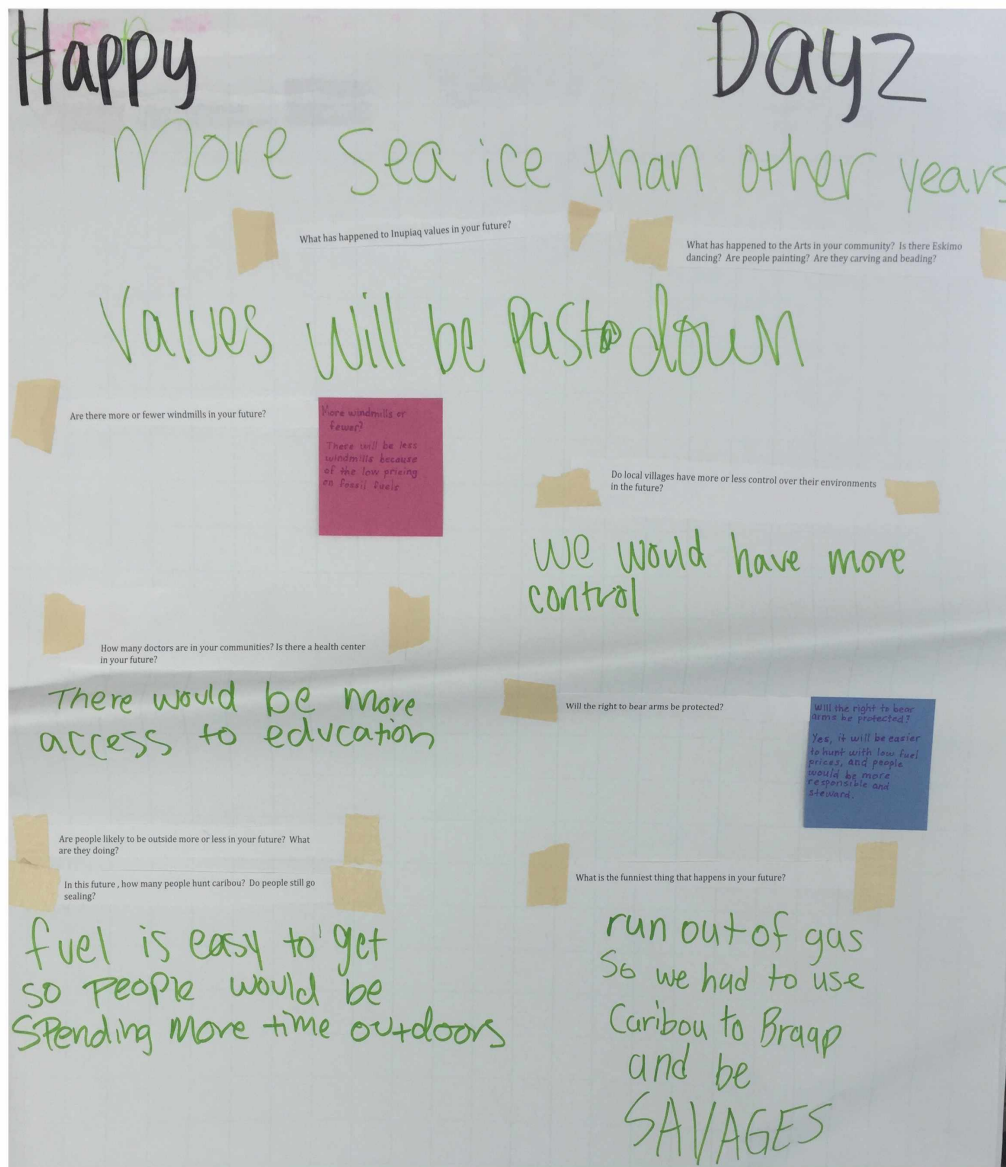 Happy Dayz
More Sea ice than other years
What has happened to Inupiaq values in your future?
What has happened to the Arts in your community? Is there Eskimo
dancing? Are people painting? Are they carving and beading?
Values will be Past down
Are there more or fewer windmills in your future?
More windmills or
fewer?
There will be less
windmills because
of the low pricing
on fossil fuels
Do local villages have more or less control over their environments
in the future?
we would have more
control
How many doctors are in your communities? Is there a health center
in your future?
There would be more
access to education
Will the right to bear arms be protected?
Will the right to bear
arms be protected?
Yes, it will be easier
to hunt with low fuel
prices, and people
would be more
responsible and
steward.
Are people likely to be outside more or less in your future? What
are they doing?
In this future, how many people hunt caribou? Do people still go
sealing?
fuel is easy to get
so people would be
spending more time outdoors
What is the funniest thing that happens in your future?
run out of gas
So we had to use
Caribou to Braap
and be
SAVAGES